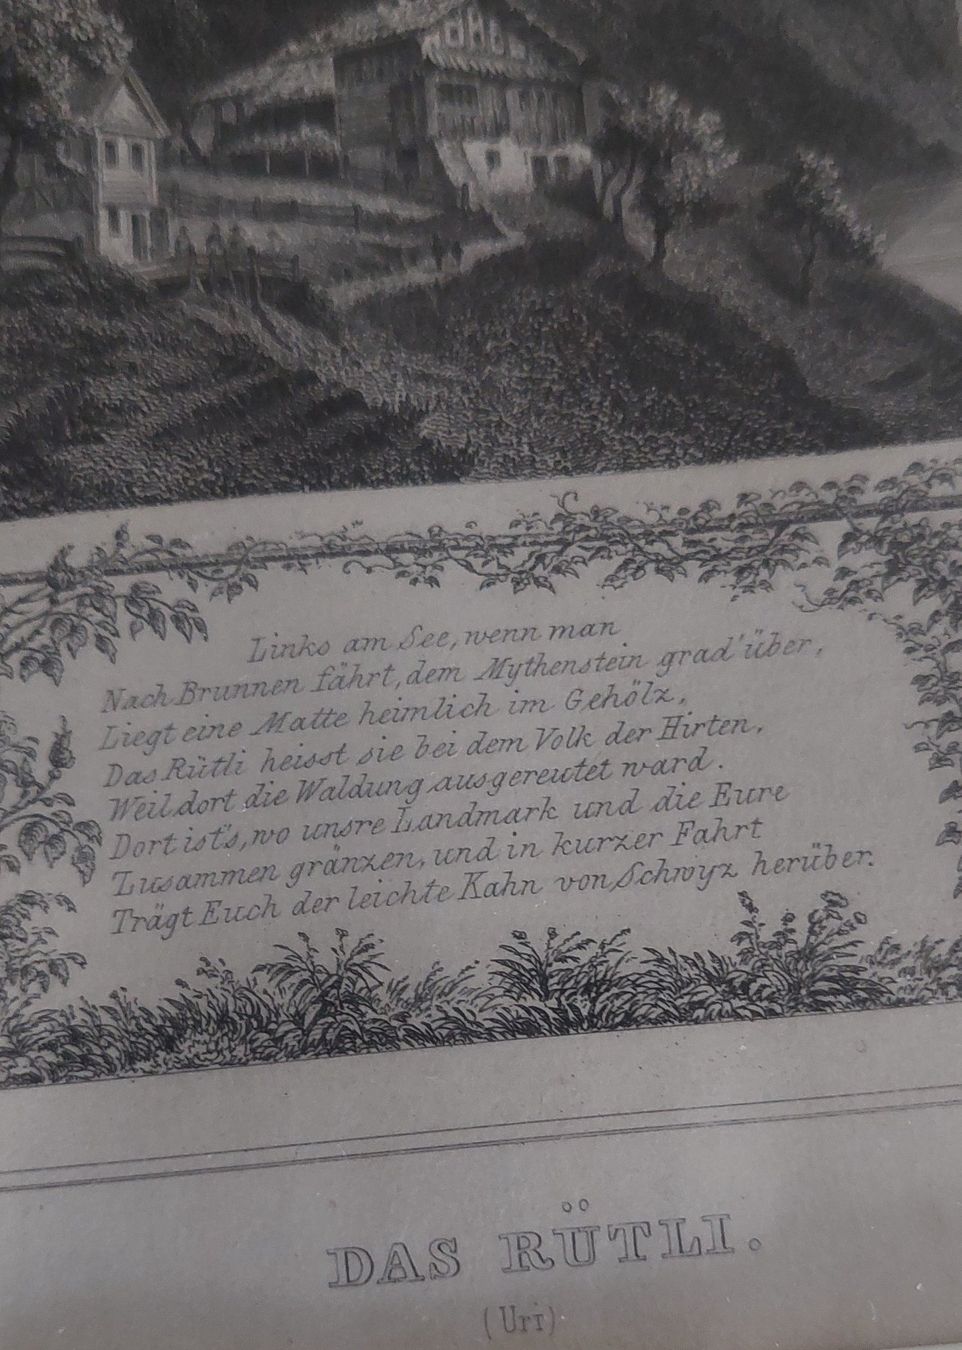 Links am See, wenn man
Nach Brunnen fährt, dem Mythenstein grad' über,
Liegt eine Matte heimlich im Gehölz,
Das Rütli heisst sie bei dem Volk der Hirten,
Weil dort die Waldung ausgereutet ward.
Dort ist's, wo unsre Landmark und die Eure
Zusammen gränzen, und in kurzer Fahrt
Trägt Euch der leichte Kahn von Schwyz herüber.
DAS RÜTLI.
(Uri)